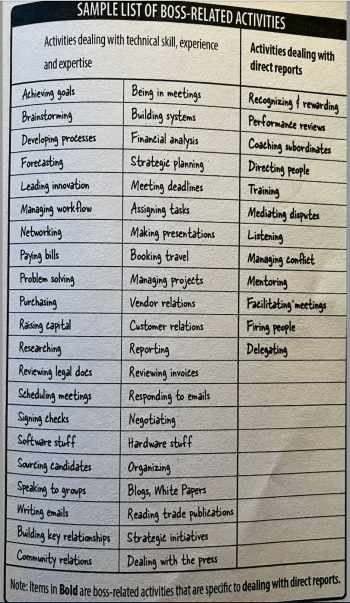 SAMPLE LIST OF BOSS-RELATED ACTIVITIES
Activities dealing with technical skill, experience
and expertise
Activities dealing with
direct reports
Achieving goals Being in meetings Recognizing & rewarding
Brainstorming Building systems Performance reviews
Developing processes Financial analysis Coaching subordinates
Forecasting Strategic planning Directing people
Leading innovation Meeting deadlines Training
Managing workflow Assigning tasks Mediating disputes
Networking Making presentations Listening
Paying bills Booking travel Managing conflict
Problem solving Managing projects Mentoring
Purchasing Vendor relations Facilitating meetings
Raising capital Customer relations Firing people
Researching Reporting Delegating
Reviewing legal docs Reviewing invoices
Scheduling meetings Responding to emails
Signing checks Negotiating
Software stuff Hardware stuff
Sourcing candidates Organizing
Speaking to groups Blogs, White Papers
Writing emails Reading trade publications
Building key relationships Strategic initiatives
Community relations Dealing with the press
Note: Items in Bold are boss-related activities that are specific to dealing with direct reports.